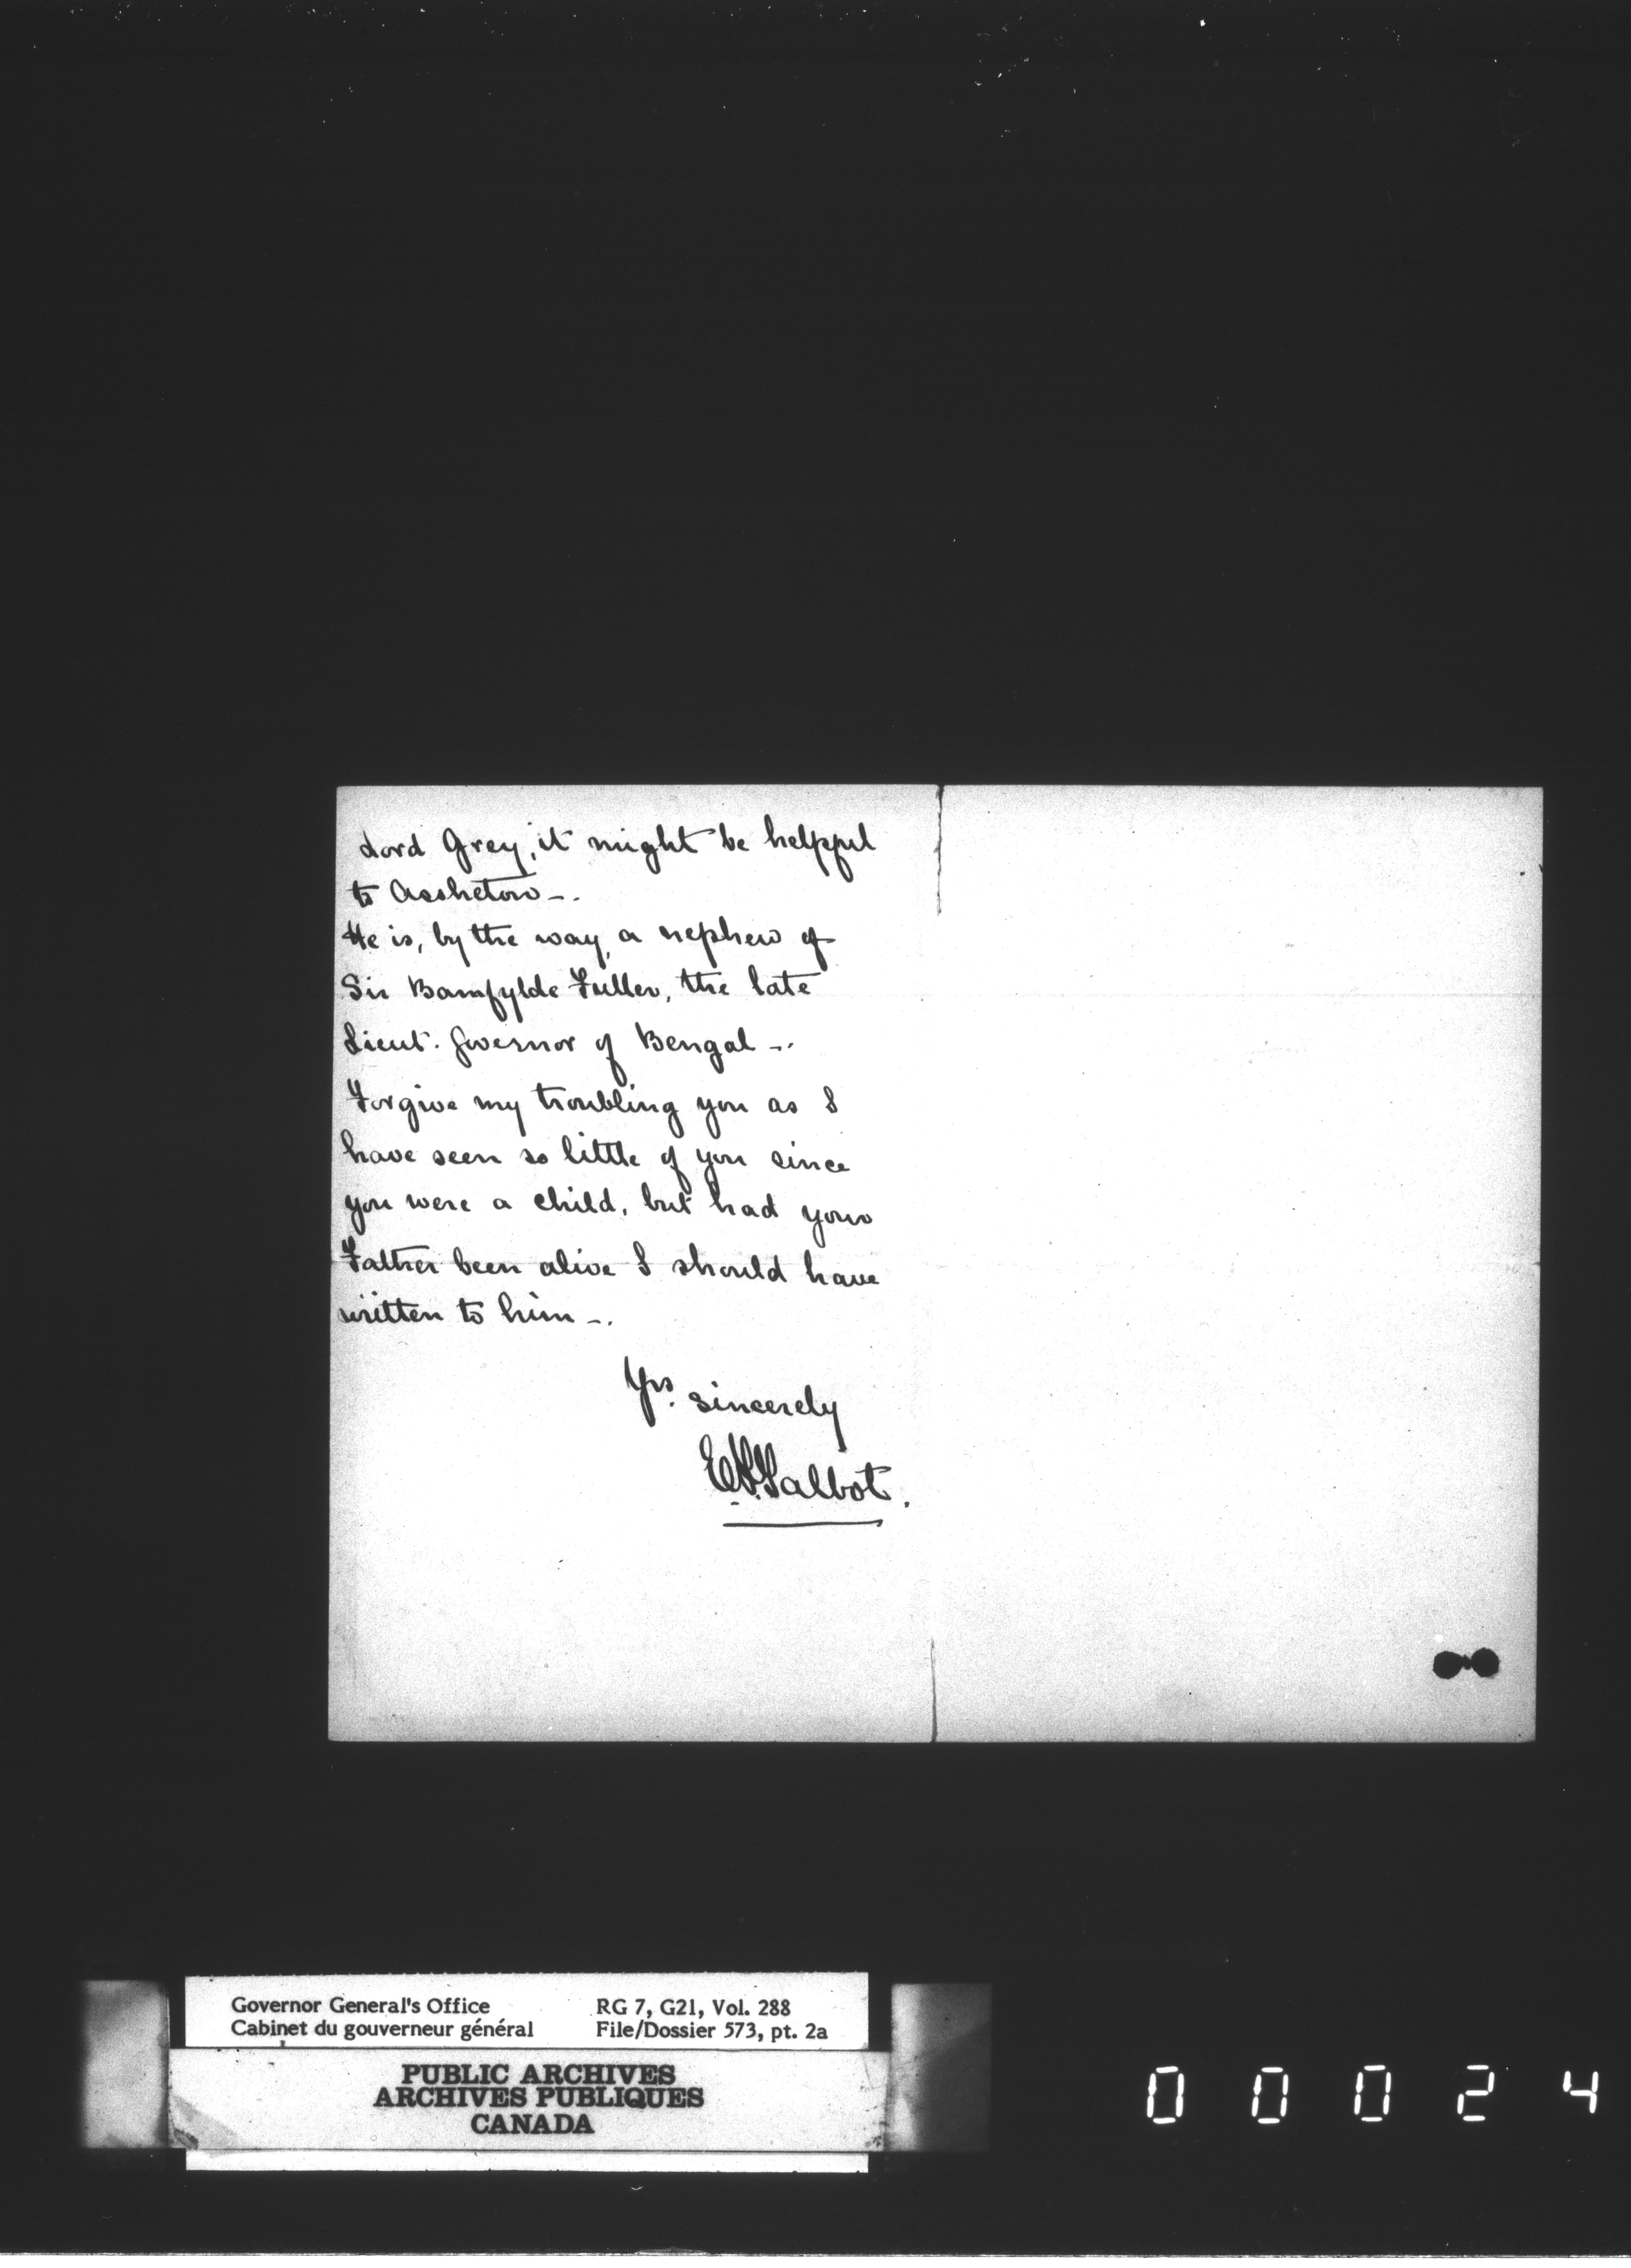 Lord Grey, it might be helpful
to Assheton -.
He is, by the way, a nephew of
Sir Bamfylde Fuller, the late
Lieut. Governor of Bengal -.
Forgive my troubling you as I
have seen so little of you since
you were a child, but had your
Father been alive I should have
written to him -.
Yrs. sincerely
Talbot.
Governor General's Office
Cabinet du gouverneur général
RG 7, G21, Vol. 288
File/Dossier 573, pt. 2a
PUBLIC ARCHIVES
ARCHIVES PUBLIQUES
CANADA
0 0 0 2 4